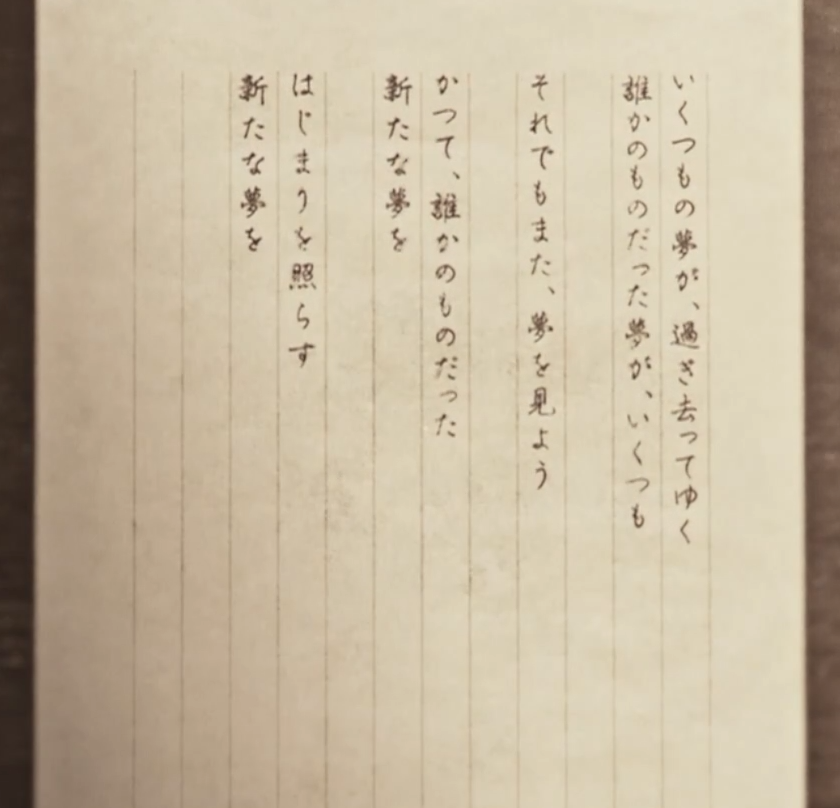 いくつもの夢が、過ぎ去ってゆく
誰かのものだった夢が、いくつも
それでもまた、夢を見よう
かつて、誰かのものだった
新たな夢を
はじまりを照らす
新たな夢を